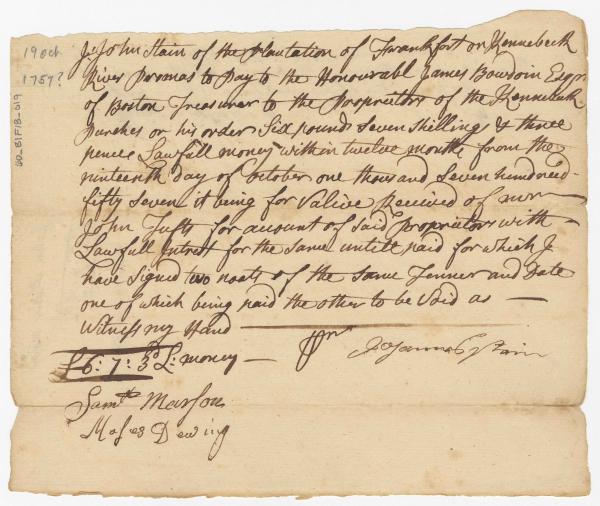 19 Oct
1757?
60_B1F18_019
J: John Stain of the Plantation of Frankfort on Kennebeck
River Promas to Pay to the Honourabl James Bowdoin Esqr
of Boston Treasurer to the Proprietors of the Kennebeck
Purches or his order Six pounds Seven Shellings & three
pence Lawfull money within twelve months from the
ninteenth day of October one thousand seven hundred
fifty Seven it being for Valive Received of mr
John Tufts for account of said Proprietors with
Lawfull Intrest for the same untill paid for which J
have signed two noats of the Same Tenner and Date
one of which being paid the other to be Void as
Witness my Hand
£6: 7: 3d L: money
Johannes Stain
Samll Marson
Moses Dewing